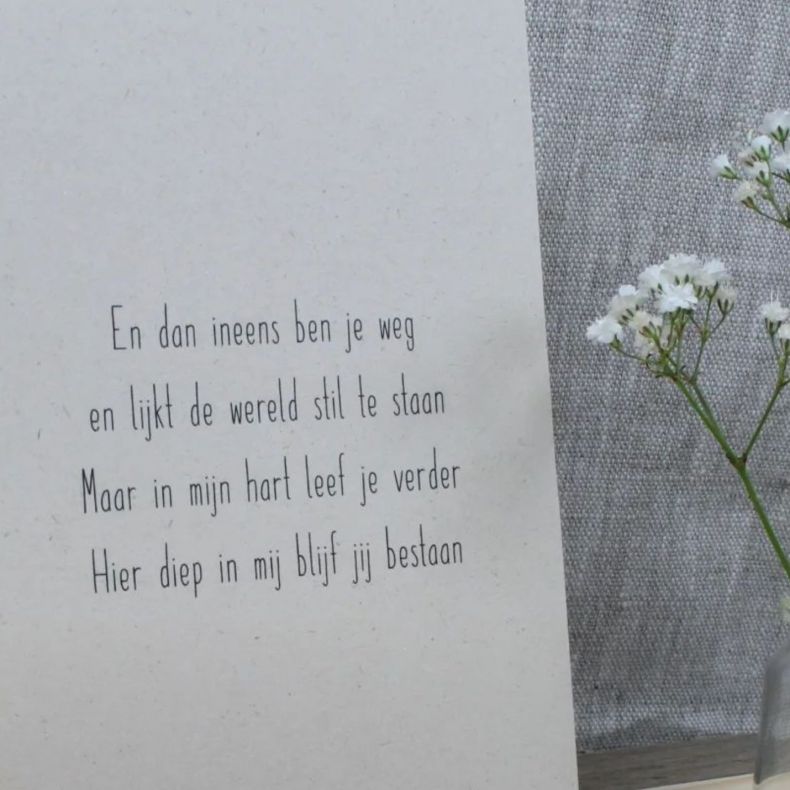 En dan ineens ben je weg
en lijkt de wereld stil te staan
Maar in mijn hart leef je verder
Hier diep in mij blijf jij bestaan